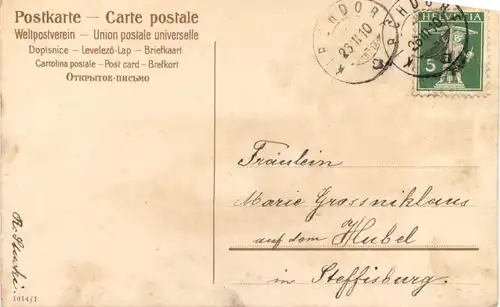 Postkarte — Carte postale
Weltpostverein — Union postale universelle
Dopisnice — Levelező-Lap — Briefkaart
Cartolina postale — Post card — Brefkort
Открытое-письмо
KIRCHDORF
26.II.10
KIRCHDORF
26.II.10
HELVETIA
5
Fräulein
Marie Grossniklaus
auf dem Hubel
in Steffisburg.
1014/1